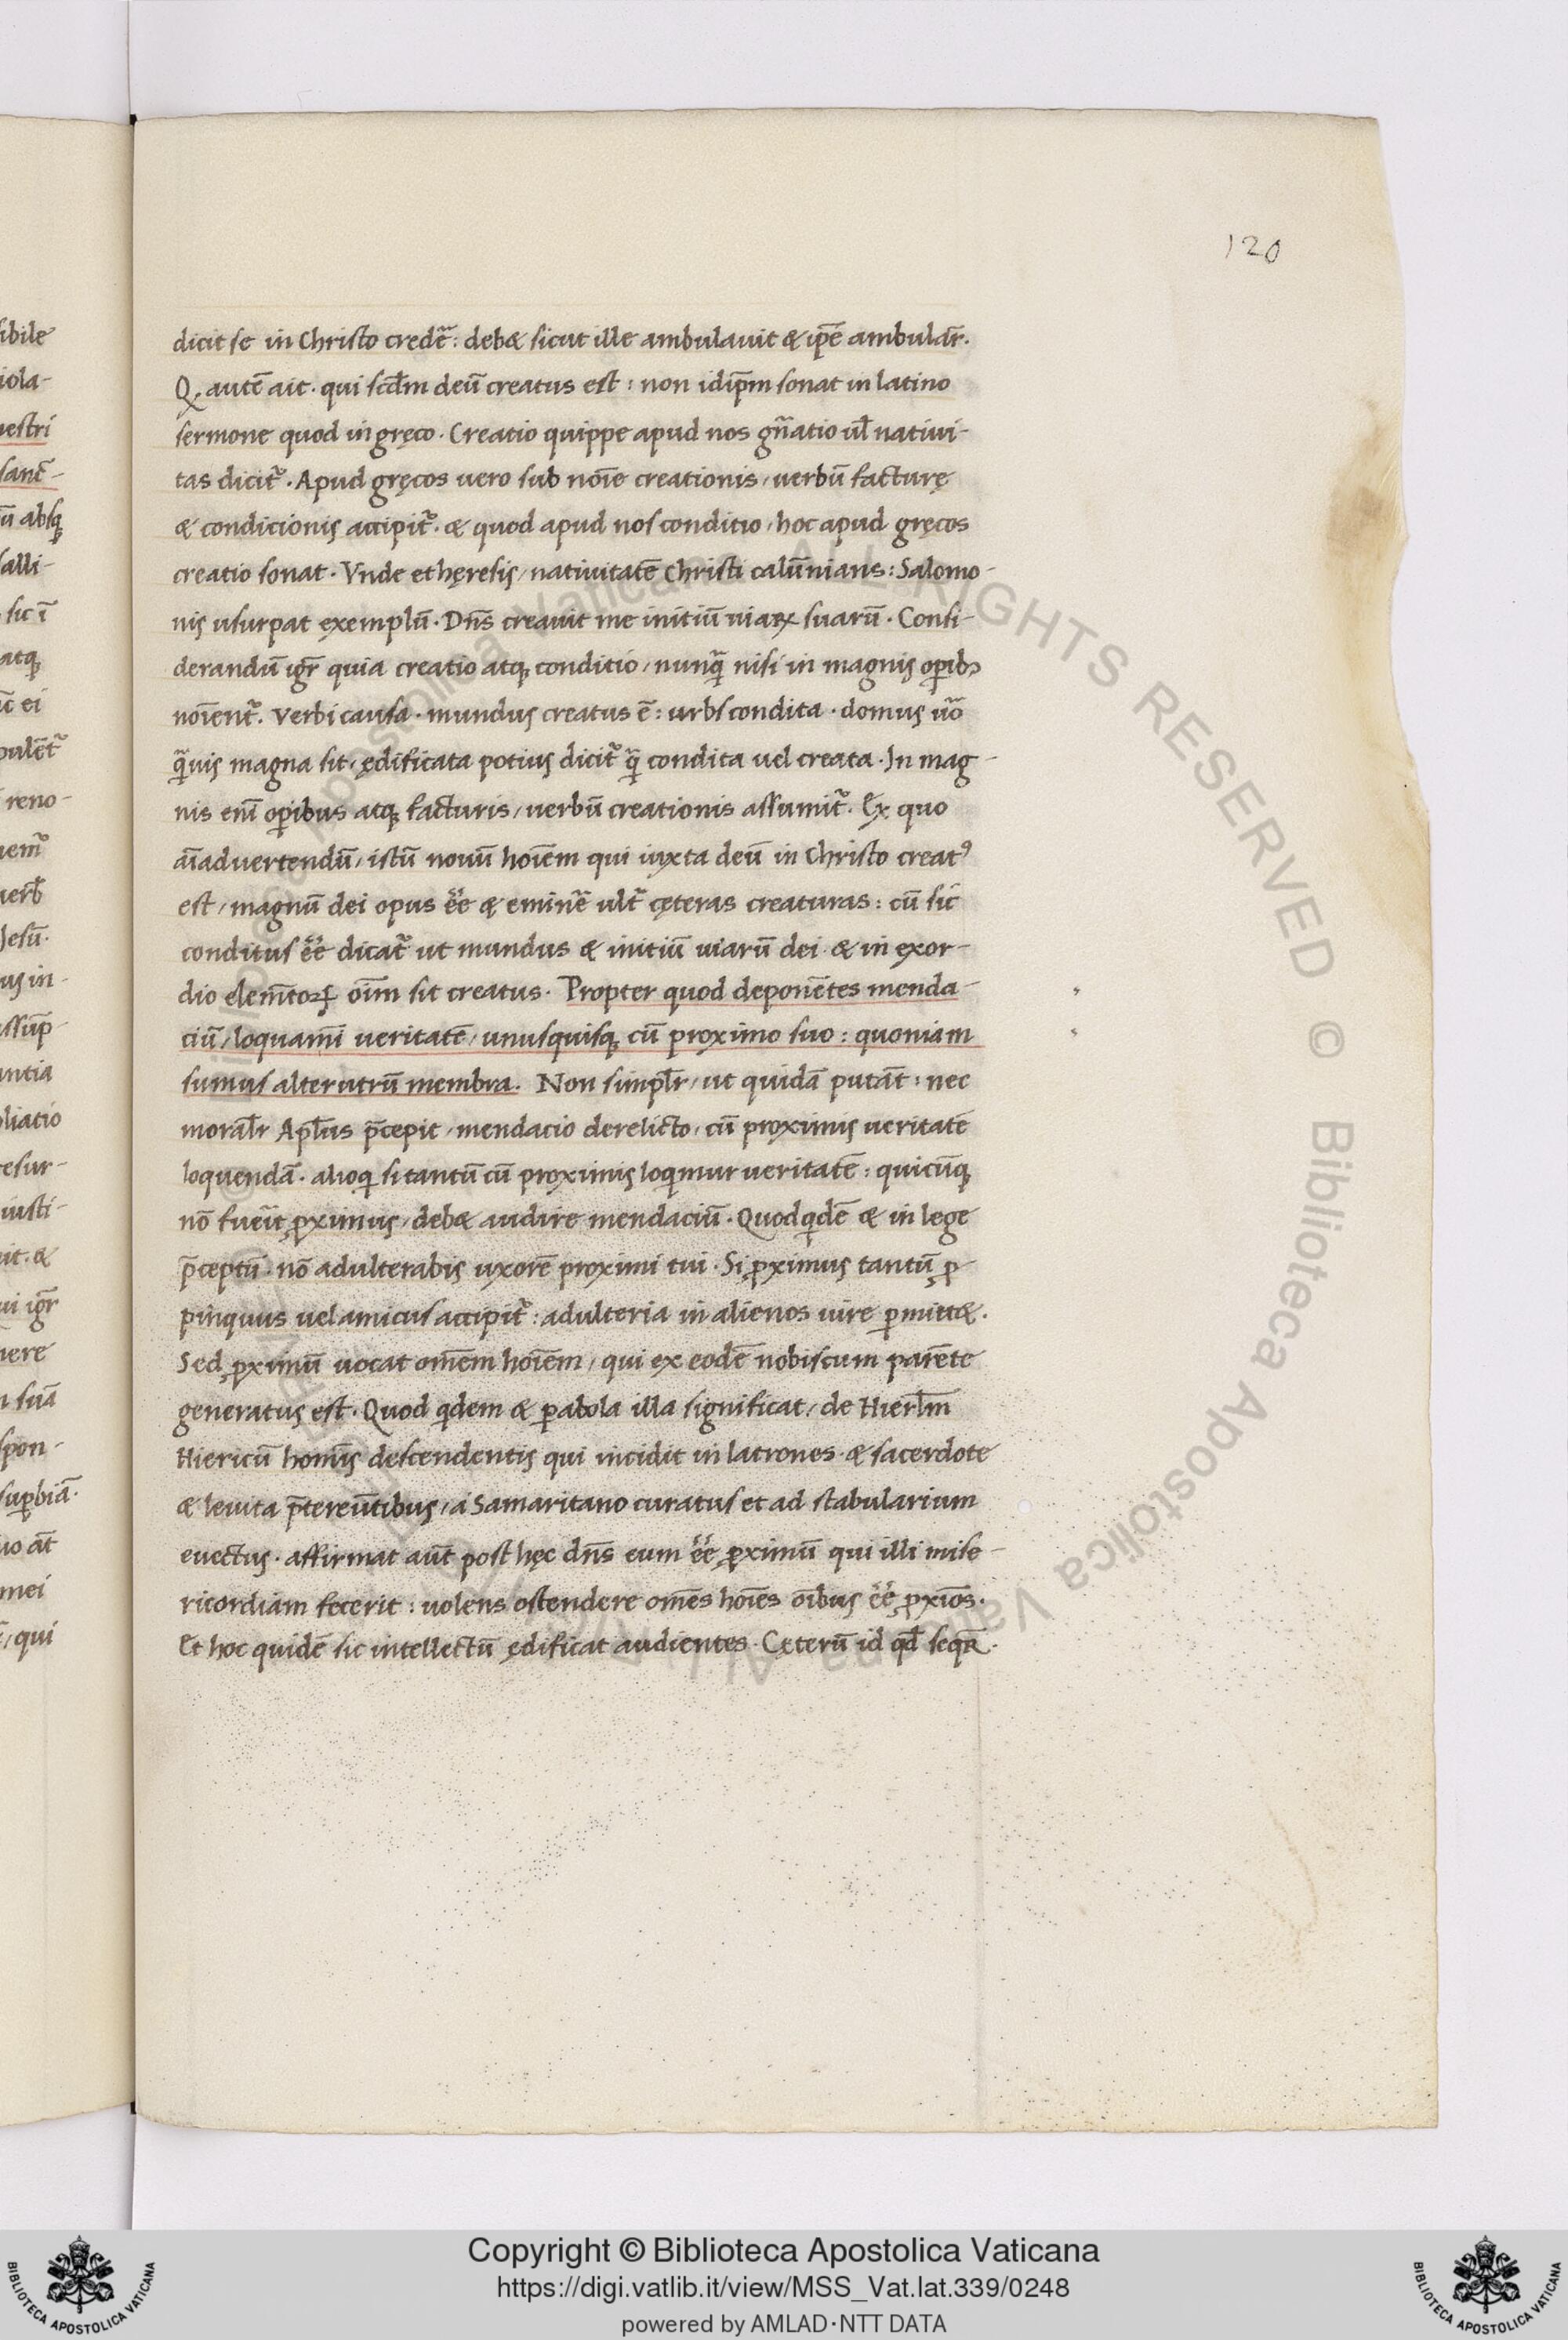 120
dicit se in Christo credẽ: debet sicut ille ambulauit & ip̃e ambular̃.
Q. autẽ ait. qui scd̃m deũ creatus est: non idip̃m sonat in latino
sermone quod in gręco. Creatio quippe apud nos gñatio ul̃ natiui-
tas dicit̃. Apud gręcos uero sub noĩe creationis, uerbũ facturę
& condicionis accipit̃. & quod apud nos conditio, hoc apud gręcos
creatio sonat. Vnde et hęresis, natiuitatẽ Christi calũnians: Salomo-
nis usurpat exemplũ. Dñs creauit me initiũ uiaꝝ suarũ. Consi-
derandũ igr̃ quia creatio atqꝫ conditio, nunq̃ nisi in magnis oꝑibꝫ
noĩent̃. Verbi causa. mundus creatus ẽ: urbs condita. domus ũo
q̃uis magna sit, ędificata potius dicit̃ q̃ condita uel creata. In mag-
nis enĩ oꝑibus atqꝫ facturis, uerbũ creationis assumit̃. Ex quo
aĩaduertendũ, istũ nouũ hoĩem qui iuxta deũ in Christo creatꝰ
est, magnũ dei opus eẽ & eminẽ ult̃ cęteras creaturas: cũ sic
conditus eẽ dicat̃ ut mundus & initiũ uiarũ dei & in exor-
dio elem̃toꝝ oĩm sit creatus. Propter quod deponẽtes menda-
ciũ, loquamĩ ueritatẽ, unusquisqꝫ cũ proximo suo: quoniam
sumus alterutrũ membra. Non simpl̃r, ut quidã putãt: nec
moral̃r Apl̃us p̃cepit, mendacio derelicto, cũ proximis ueritatẽ
loquendã. alioqi si tantũ cũ proximis loqimur ueritatẽ: quicũqꝫ
nõ fueĩt ꝓximus, debet audire mendaciũ. Quod qidẽ & in lege
p̃ceptũ. nõ adulterabis uxorẽ proximi tui. Si ꝓximus tantũ ꝓ
pinquus uel amicus accipit̃: adulteria in alienos uire ꝑmittet.
Sed ꝓximũ uocat omẽm hoĩem, qui ex eodẽ nobiscum parẽte
generatus est. Quod qdem & ꝑabola illa significat, de Hierl̃m
Hiericũ homĩs descendentis qui incidit in latrones. & sacerdote
& leuita p̃tereũtibus, a Samaritano curatus et ad stabularium
euectus. affirmat aũt post hęc dñs eum eẽ ꝓximũ qui illi mise-
ricordiam fecerit: uolens ostendere omẽs hoĩes oĩbus eẽ ꝓxiõs.
Et hoc quidẽ sic intellectũ ędificat audientes. Cęterũ id qđ seqr̃.
Copyright © Biblioteca Apostolica Vaticana
https://digi.vatlib.it/view/MSS_Vat.lat.339/0248
powered by AMLAD·NTT DATA